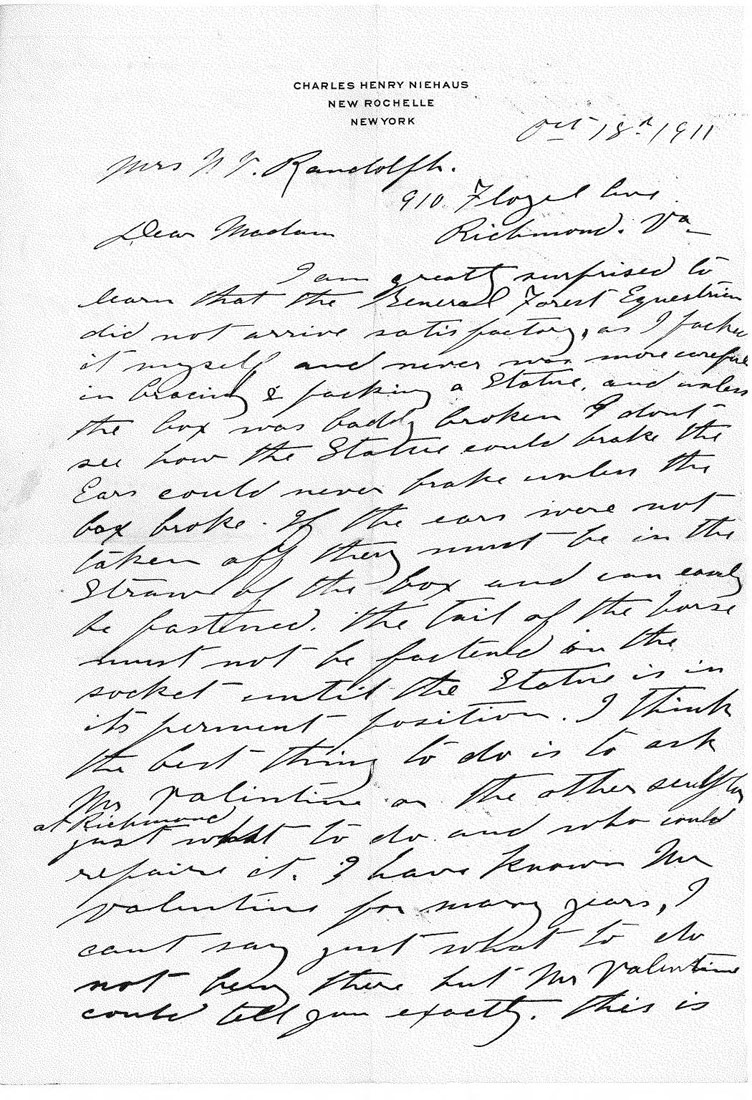 CHARLES HENRY NIEHAUS
NEW ROCHELLE
NEW YORK
Oct 18th 1911
Mrs N. V. Randolph.
910 Floyd Ave.
Dear Madam Richmond. Va
I am greatly surprised to
learn that the General Forest Equestrien
did not arrive satisfactory, as I packed
it myself and never was more careful
in bracing & packing a Statue, and unless
the box was badly broken I dont
see how the Statue could brake the
Ears could never brake unless the
box broke. If the ears were not
taken off they must be in the
Straw of the box and can easily
be fastened. the tail of the horse
must not be fastened in the
socket until the Statue is in
its perment position. I think
the best thing to do is to ask
Mr Valintine or the other sculptor
at Richmond
just what to do and who could
repaire it. I have known Mr
Valentine for many years, I
cant say just what to do
not being there but Mr Valentine
could tell you exactly. this is